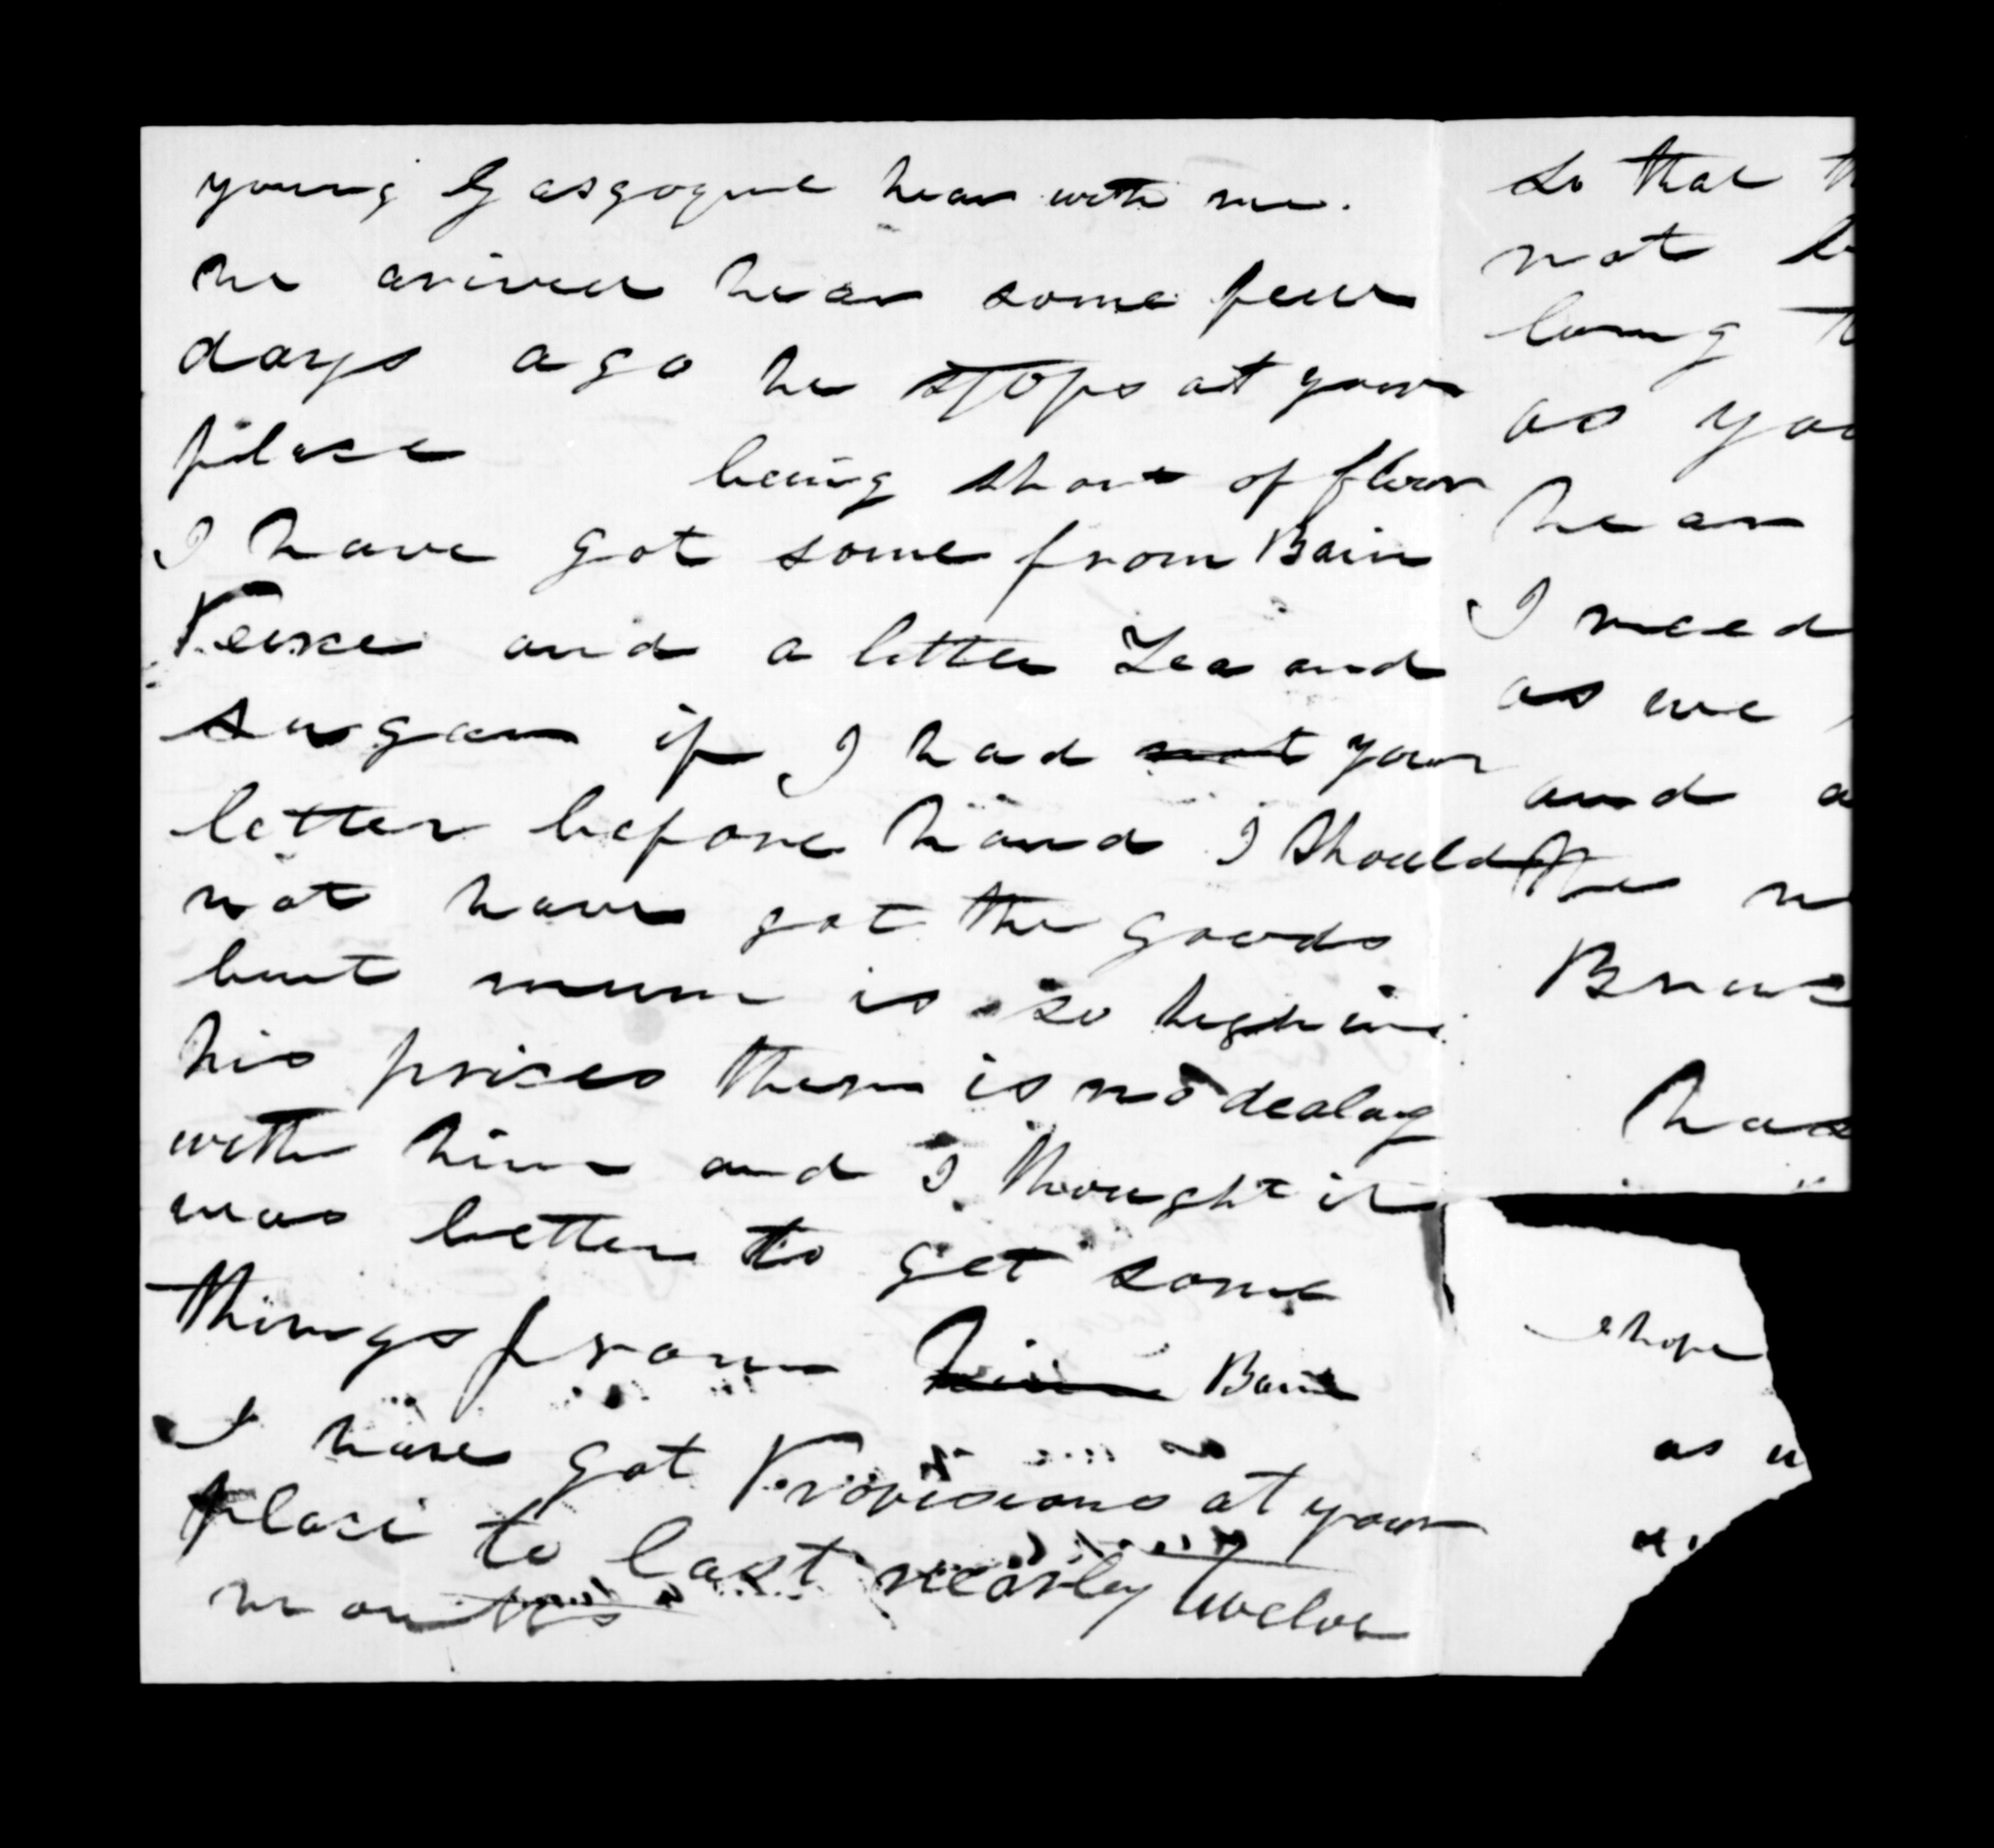 young Gasgogne hear with me.
he arived hear some few
days ago he stops at your
place being short of flour
I have got some from Bain
and a little Tea and
sugar if I had not your
letter before hand I should
not have got the goods
but is so high in
his prices there is no dealng
with him and I thought it
was better to get some
things from him Bain
I have got Provisions at your
place to last nearley twelve
months
so that
not
long
as you
hear
I need
as we
and a
the
has
hope
as